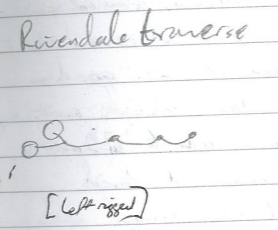 Rivendale traverse
[left rigged]